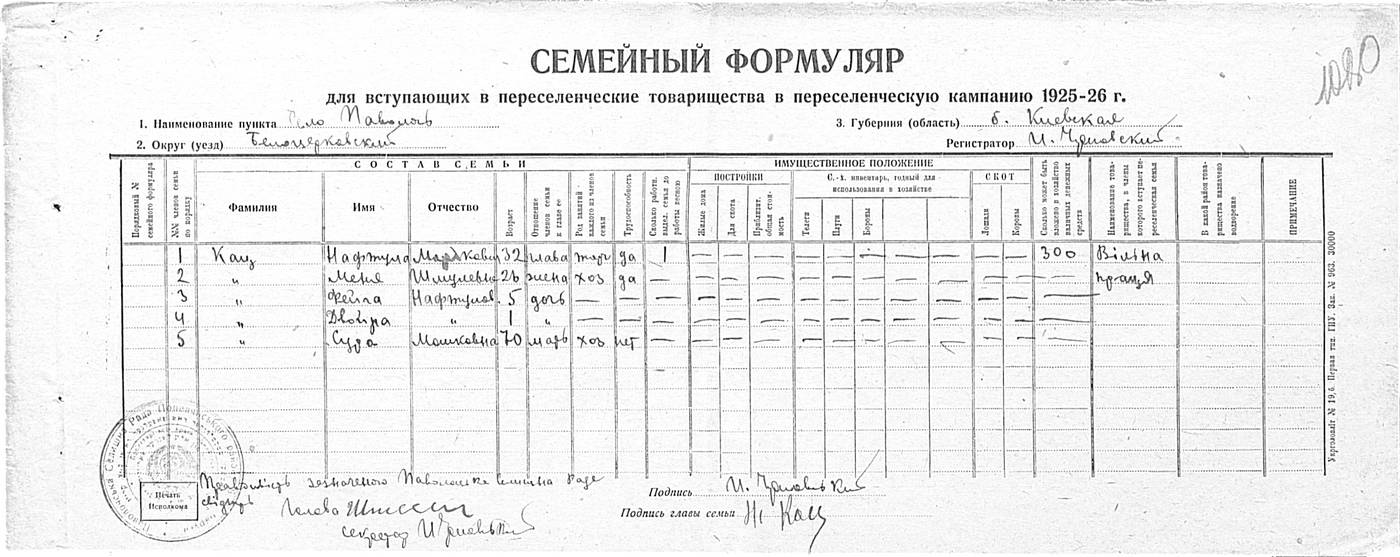 1080
СЕМЕЙНЫЙ ФОРМУЛЯР
для вступающих в переселенческие товарищества в переселенческую кампанию 1925-26 г.
1. Наименование пункта Село Паволочь 3. Губерния (область) б. Киевская
2. Округ (уезд) Белоцерковский Регистратор И.
СОСТАВ СЕМЬИ ИМУЩЕСТВЕННОЕ ПОЛОЖЕНИЕ
ПОСТРОЙКИ С.-х. инвентарь, годный для использования в хозяйстве СКОТ
Порядковый № семейного формуляра №№ членов семьи по порядку Фамилия Имя Отчество Возраст Отношение членов семьи к главе ее Род занятий каждого из членов семьи Трудоспособность Сколько работн. выдел. семья до работы весною Жилые дома Для скота Приблизит. общая стоимость Телеги Плуги Бороны Лошади Коровы Сколько может быть вложено в хозяйство наличных денежных средств Наименование товарищества, в члены которого вступает переселенческая семья В какой район товарищества назначено водворение ПРИМЕЧАНИЕ
1 Кац Нафтула Маркович 32 глава торг да 1 — — — — — — — — — — — 300 Вільна
2 „ Меня Шмулевна 26 жена хоз да — — — — — — — — — — — — — праця
3 „ Фейга Нафтулов. 5 дочь — — — — — — — — — — — — — —
4 „ Двойра „ 1 „ — — — — — — — — — — — — — —
5 „ Сура Мошковна 70 мать хоз нет — — — — — — — — — — — — —
Укрголовліт № 19,6. Первая тип. ГПУ. Зак. № 963. 30000
Печать
Исполкома
Подпись И.
Голова
Подпись главы семьи Н. Кац
секретар